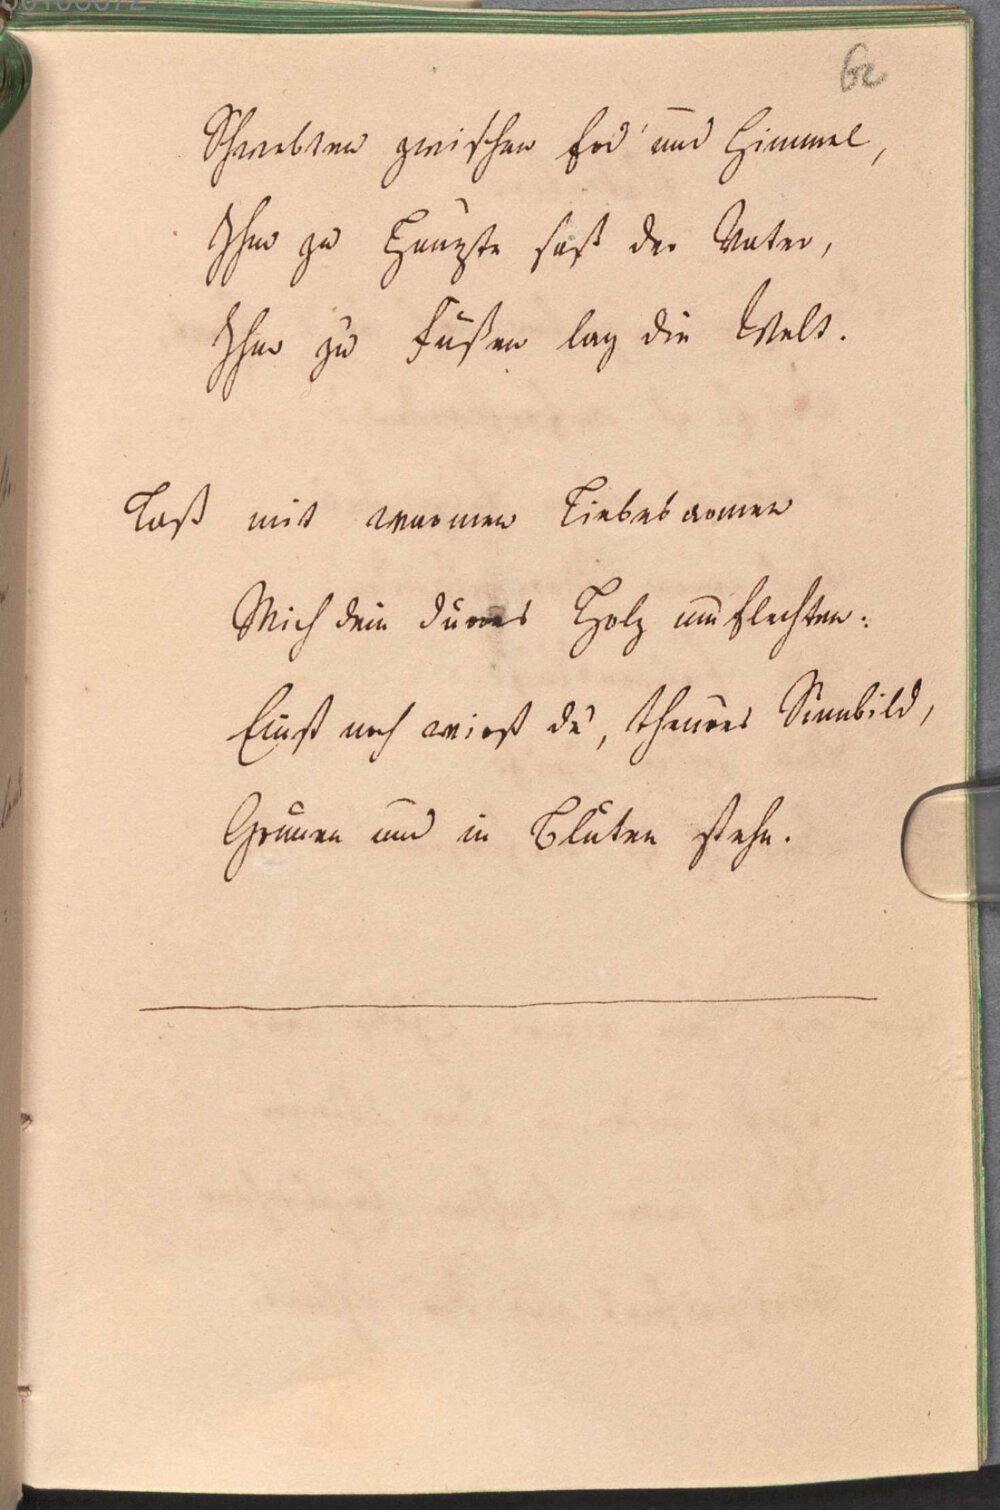 62
Schwebten zwischen Erd' und Himmel,
Ihm zu Häupte saß der Vater,
Ihm zu Füßen lag die Welt.
Laß mit warmen Liebesarmen
Mich dein dürres Holz umflechten:
Einst noch wirst du, theures Sinnbild,
Grünen und in Blüten stehn.